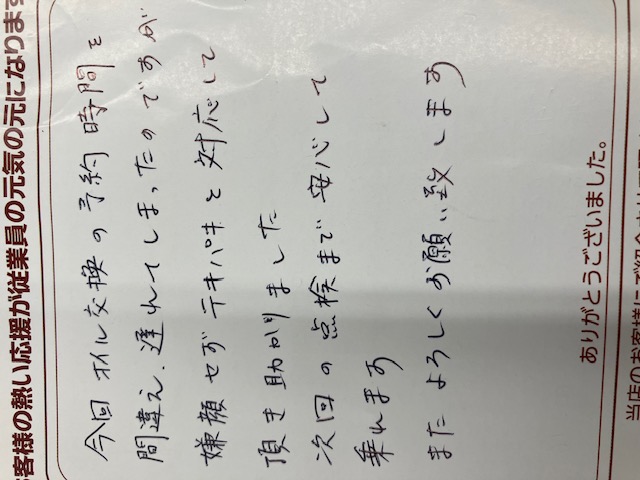 お客様の熱い応援が従業員の元気の元になります
今回オイル交換の予約時間を
間違え、遅れてしまったのですが
嫌顔せずテキパキと対応して
頂き助かりました
次回の点検まで安心して
乗れます
またよろしくお願い致します
ありがとうございました。
当店のお客様にご紹介